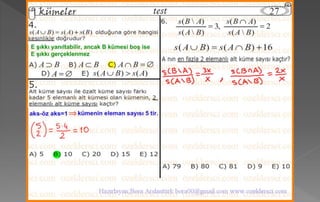 kümeler test 27
4.
s(A∪B) = s(A) + s(B) olduğuna göre hangisi
kesinlikle doğrudur?
E şıkkı yanıltabilir, ancak B kümesi boş ise
E şıkkı gerçeklenmez
A) A ⊃ B B) A ⊂ B C) A∩B = ∅
D) A = ∅ E) s(A∪B) > s(A)
5.
Alt küme sayısı ile özalt küme sayısı farkı
kadar 5 elemanlı alt kümesi olan kümenin, 2
elemanlı alt küme sayısı kaçtır?
aks-öz aks=1 ⇒ kümenin eleman sayısı 5 tir.
(5 2) = 5.4 / 2 = 10
A) 5 B) 10 C) 20 D) 15 E) 12
6. s(B \ A) / s(A \ B) = 3, s(B ∩ A) / s(A \ B) = 2
s(A∪B) = s(A∩B) + 16
A nın en fazla 2 elemanlı alt küme sayısı kaçtır?
s(B\A) / s(A\B) = 3x / x , s(B∩A) / s(A\B) = 2x / x
A) 79 B) 80 C) 81 D) 9 E) 10
Hazırlayan,Bora Arslantürk bora00@gmail.com www.ozelderssci.com